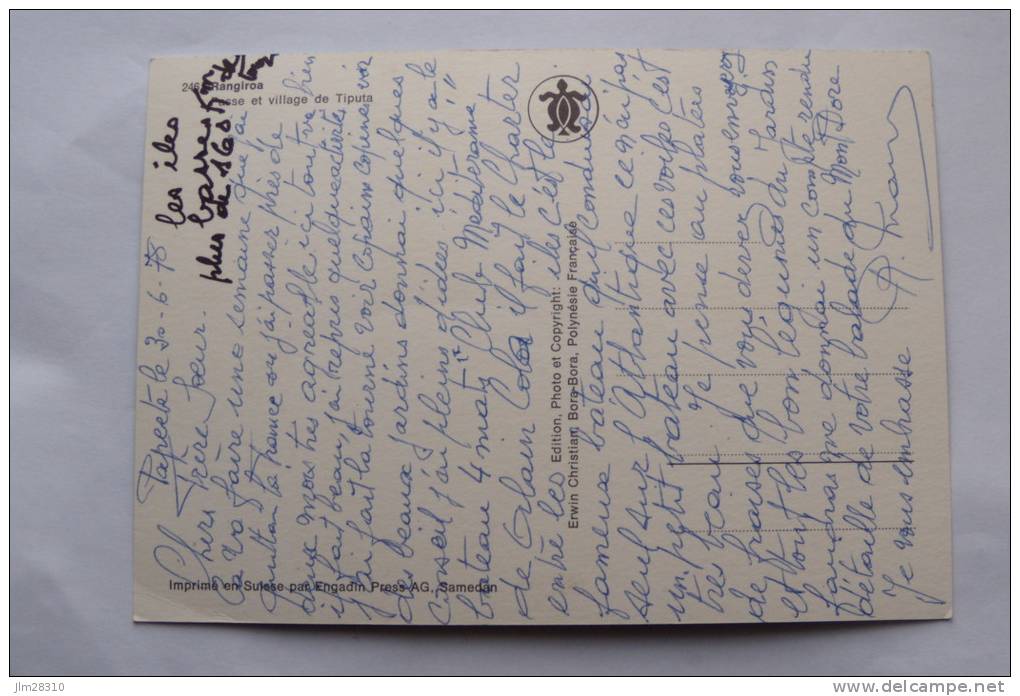 246 Rangiroa
Passe et village de Tiputa
les iles
basse
plus de 160
Papeete le 30-6-78
Chers Frère Soeur.
ça va faire une semaine que j'ai
quitter la France ou j'ai passer près de
deux mois très agréable ici tout va bien
il fait beau, j'ai repris quelque activités
j'ai fait la tourné voir copain copines voir
des beaux jardins donnai quelques
conseil j'ai pleins d'idées. ici il y a le
bateau 4 mats "Club Méditerané"
de Alain Colas il fait le charter
entre les iles c'est le
fameux bateau qu'il conduit
seul sur l'Atlantique ce n'ai pas
un petit bateau avec ces voiles c'est
très beau Je pense au patates
de que vous dever vous
et tout les bon legumes du Jardin
faudras me donnai un compte rendu
détaille de votre balade au Mont Dore
Je vous embrasse
Edition, Photo et Copyright:
Erwin Christian, Bora-Bora, Polynésie Française
Imprimé en Suisse par Engadin Press AG, Samedan
jlm28310
www.delcampe.net